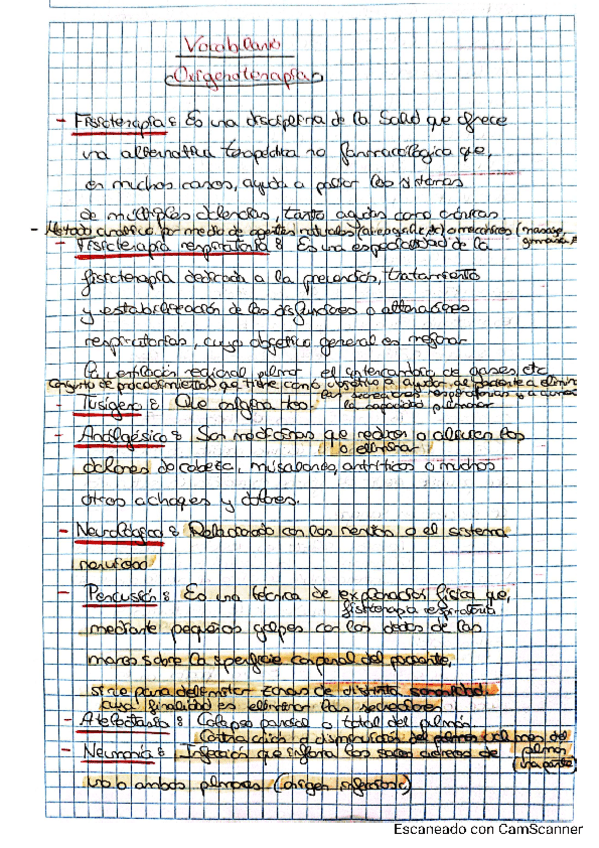 Vocabulario
Oxigenoterapia
- Fisioterapia: Es una disciplina de la Salud que ofrece
una alternativa terapéutica no farmacológica que,
en muchos casos, ayuda a paliar los síntomas
de múltiples dolencias, tanto agudas como crónicas.
- Método curativo por medio de agentes naturales (agua) o mecánicos (masaje,
gimnasia
- Fisioterapia respiratoria: Es una especialidad de la
fisioterapia dedicada a la prevención, tratamiento
y estabilización de las disfunciones o alteraciones
respiratorias, cuyo objetivo general es mejorar
la ventilación regional pulmonar el intercambio de gases, etc
Conjunto de procedimientos que tiene como objetivo ayudar al paciente a elimin
las secreciones respiratorias y a
la capacidad pulmonar
- Tusígeno: Que origina tos.
- Analgésico: Son medicinas que reducen o alivian los
o eliminar
dolores de cabeza, musculares, artríticos o muchos
otros achaques y dolores.
- Neurológica: Relacionado con los nervios o el sistema
nervioso
- Percusión: Es una técnica de exploración física que,
fisioterapia respiratoria
mediante pequeños golpes con los dedos de las
manos sobre la superficie corporal del paciente,
sirve para delimitar zonas de distinta sonoridad.
cuya finalidad es eliminar las secreciones
- Atelectasia: Colapso parcial o total del pulmón
Contracción o disminución del pulmón del
pulmón
(una parte)
- Neumonía: Infección que inflama los sacos aéreos de
uno o ambos pulmones (origen infeccioso)
Escaneado con CamScanner